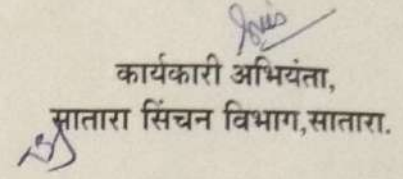 कार्यकारी अभियंता,
सातारा सिंचन विभाग,सातारा.